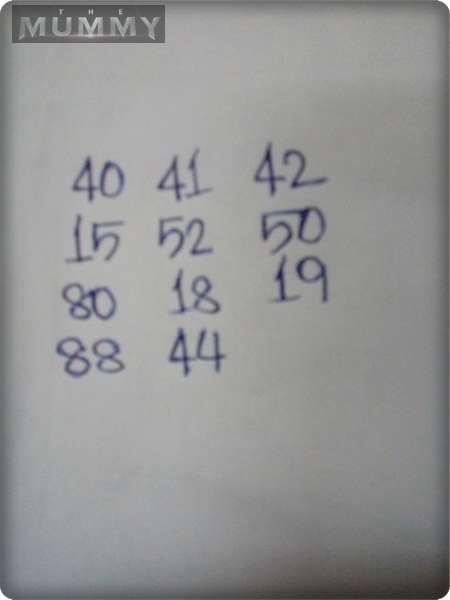 THE
MUMMY
40 41 42
15 52 50
80 18 19
88 44